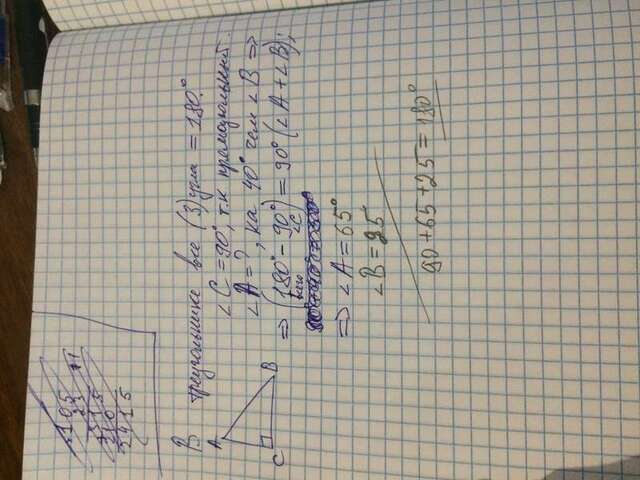 В треугольнике все (3) угла = 180°
∠C = 90°, т.к прямоугольный.
∠A = ?, на 40° чем ∠B =>
=> (180° - 90°) = 90° (∠A + ∠B);
всего ∠C
=> ∠A = 65°
∠B = 25
90 + 65 + 25 = 180°
A
C
B